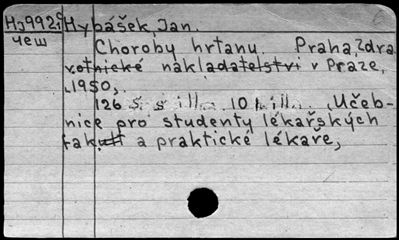 Hj992i Hybášek, Jan.
чеш
Choroby hrtanu. Praha, Zdra
votnické nakladatelství v Praze,
1950,
126 s. s illn. 10 Učeb-
nice pro studenty lékařských
fakult a praktické lékaře,